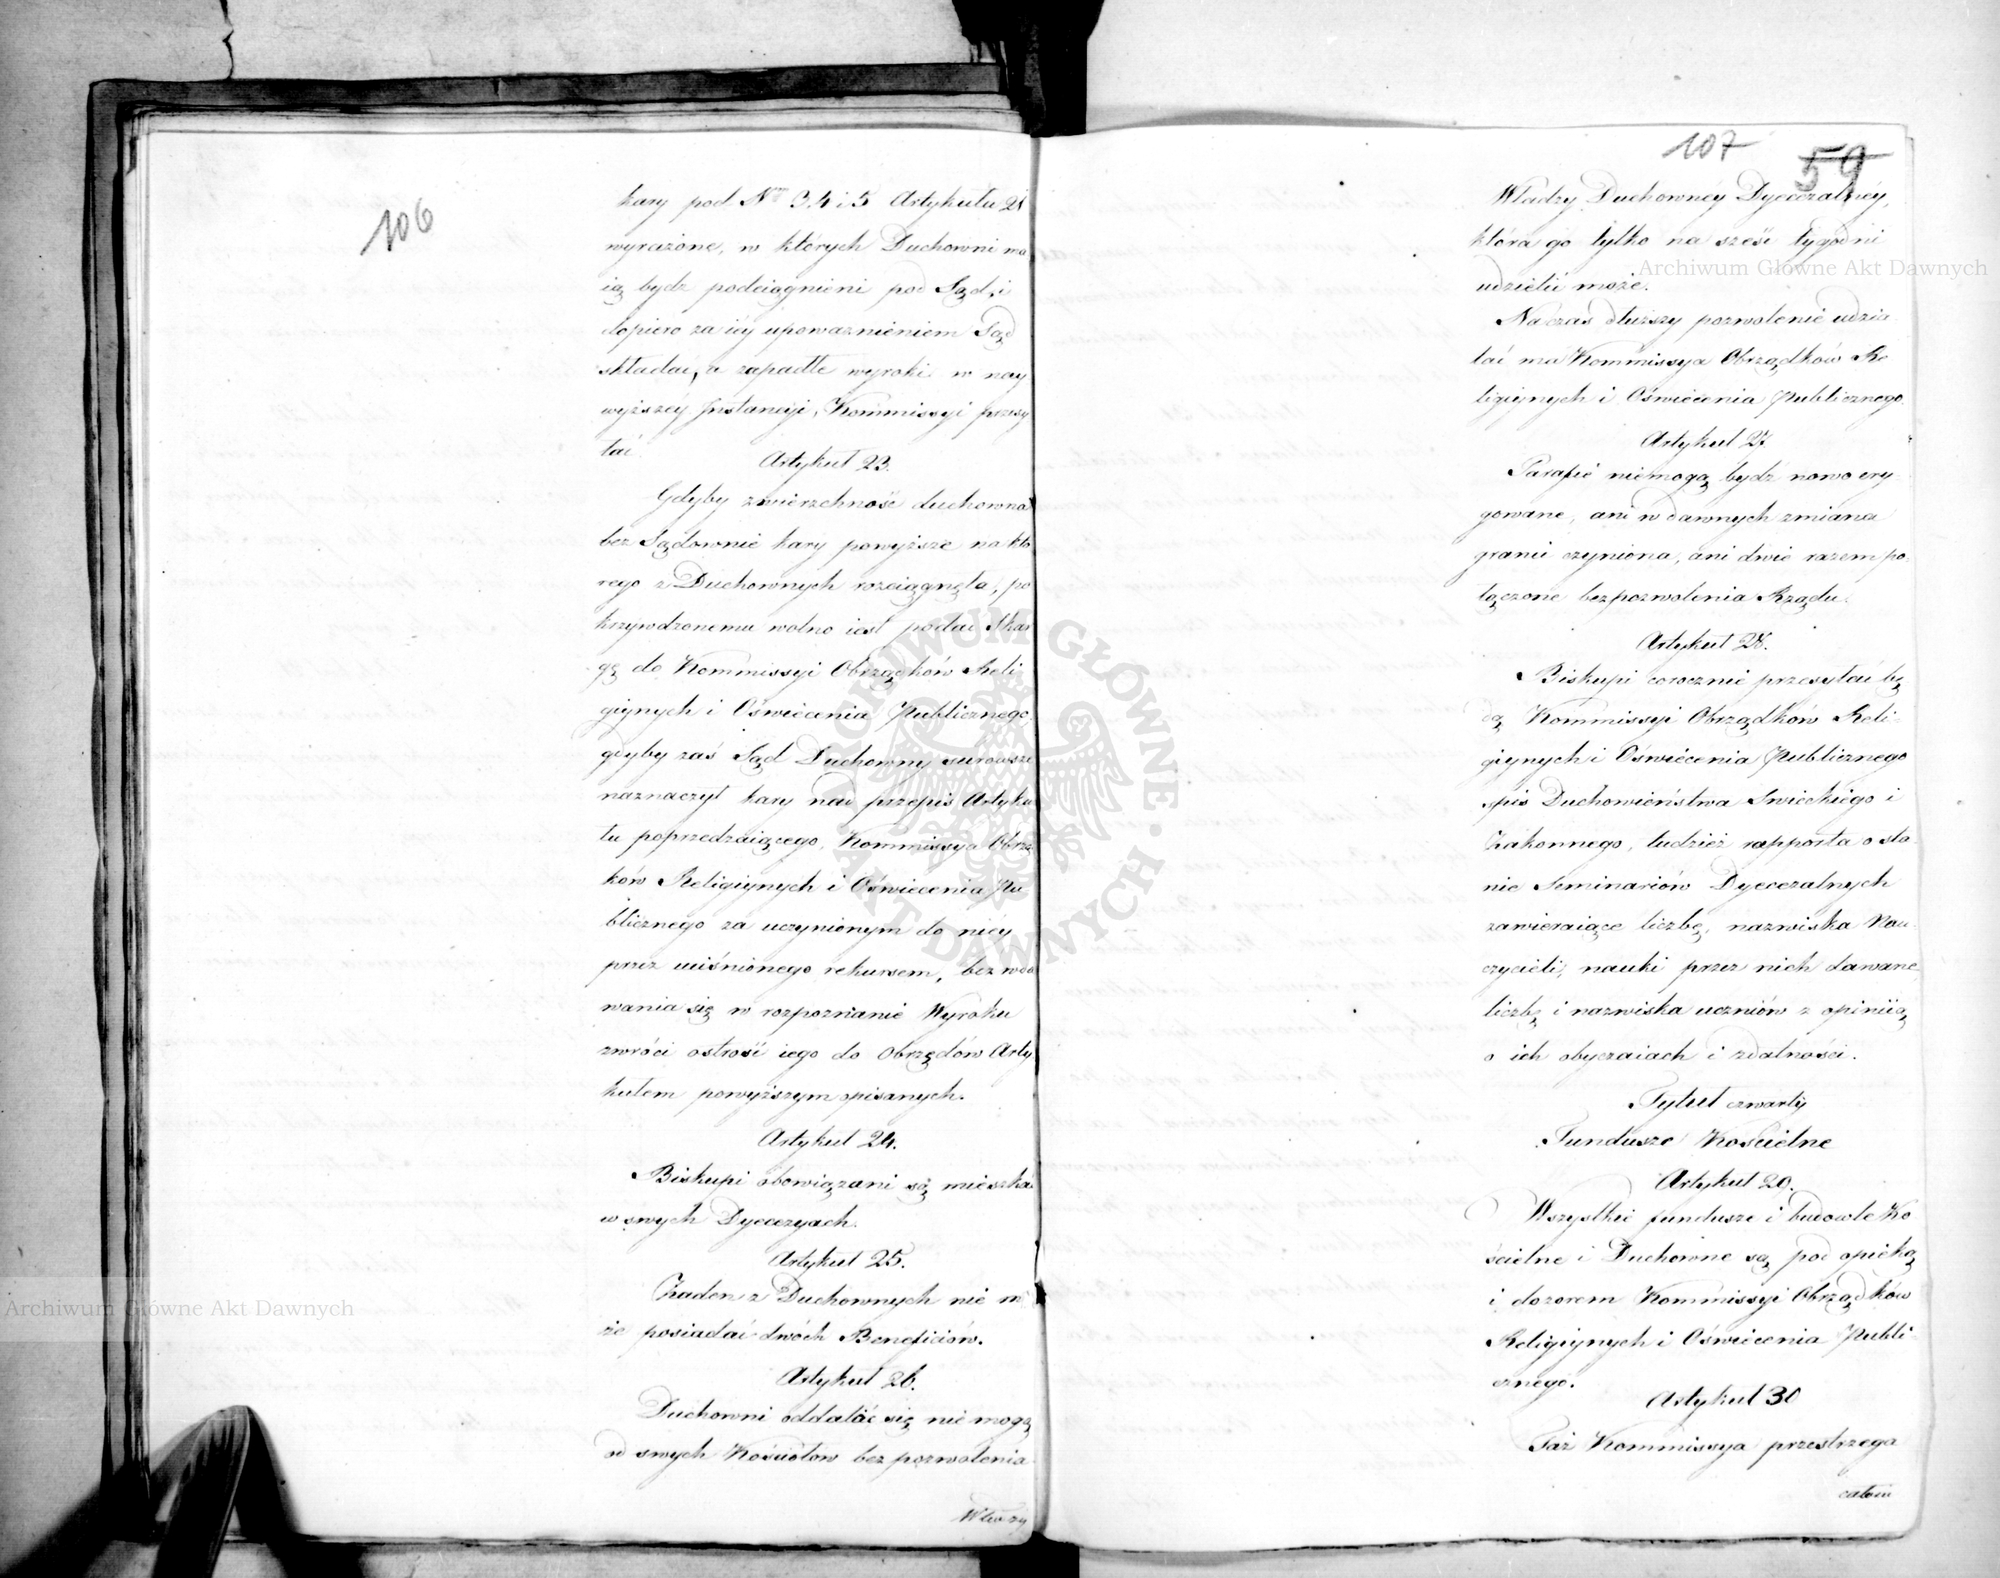 106
kary pod Nrm 3. 4 i 5 Artykułu 21
wyrażone, w których Duchowni ma
ią bydz podciągnieni pod Sąd, i
dopiero za iéy upoważnieniem Sąd
składać, a zapadłe wyroki w nay
wyższéy Instancyi, Kommissyi przesy
łać.
Artykuł 23.
Gdyby zwierzchność duchowna
bez Sądownie kary powyższe na któ
rego z Duchownych rozciągnęła, po
krzywdzonemu wolno iest podać Skar
gę do Kommissyi Obrządków Reli
giynych i Oświecenia Publicznego,
gdyby zaś Sąd Duchowny surowsze
naznaczył kary nad przepis Artyku
łu poprzedzaiącego, Kommissya Obrzą
ków Religiynych i Oświecenia Pu
blicznego za uczynionym do niéy
przez uciśnionego rekursem, bez wda
wania się w rozpoznanie Wyroku
zwróci ostrość iego do obrzędów Arty
kułem powyższym opisanych.
Artykuł 24.
Biskupi obowiązani są mieszkać
w swych Dyecezyach.
Artykuł 25.
Żaden z Duchownych nie mo
że posiadać dwóch Beneficiów.
Artykuł 26.
Duchowni oddalać się nie mogą
od swych Kościołow bez pozwolenia
Władzy
107 59
Władzy Duchownéy Dyecezalnéy,
która go tylko na sześć tygodni
udzielić może.
Na czas dłuższy pozwolenie udzie
lać ma Kommissya Obrządków Re
ligiynych i Oświécenia Publicznego.
Artykuł 27.
Parafie niemogą bydź nowo ery
gowane, ani w dawnych zmiana
granic czyniona, ani dwie razem po
łączone bez pozwolenia Rządu.
Artykuł 28.
Biskupi corocznie przesyłać bę
dą Kommissyi Obrządków Reli-
giynych i Oświécenia Publicznego
spis Duchowieństwa Swieckiego i
Zakonnego, tudzież rapporta o sta-
nie Seminariów Dyecezalnych
zawieraiące liczbę, nazwiska Nau-
czycieli, nauki przez nich dawane,
liczbę i nazwiska uczniów z opiniią
o ich obyczaiach i zdatności.
Tytuł czwarty
Fundusze Kościelne
Artykuł 29.
Wszystkie fundusze i budowle Ko
ścielne i Duchowne są pod opieką
i dozorem Kommissyi Obrządków
Religiynych i Oświécenia Publi-
cznego.
Artykuł 30
Taż Kommissya przestrzega
całości
Archiwum Główne Akt Dawnych
Archiwum Główne Akt Dawnych
ARCHIWUM GŁÓWNE AKT DAWNYCH